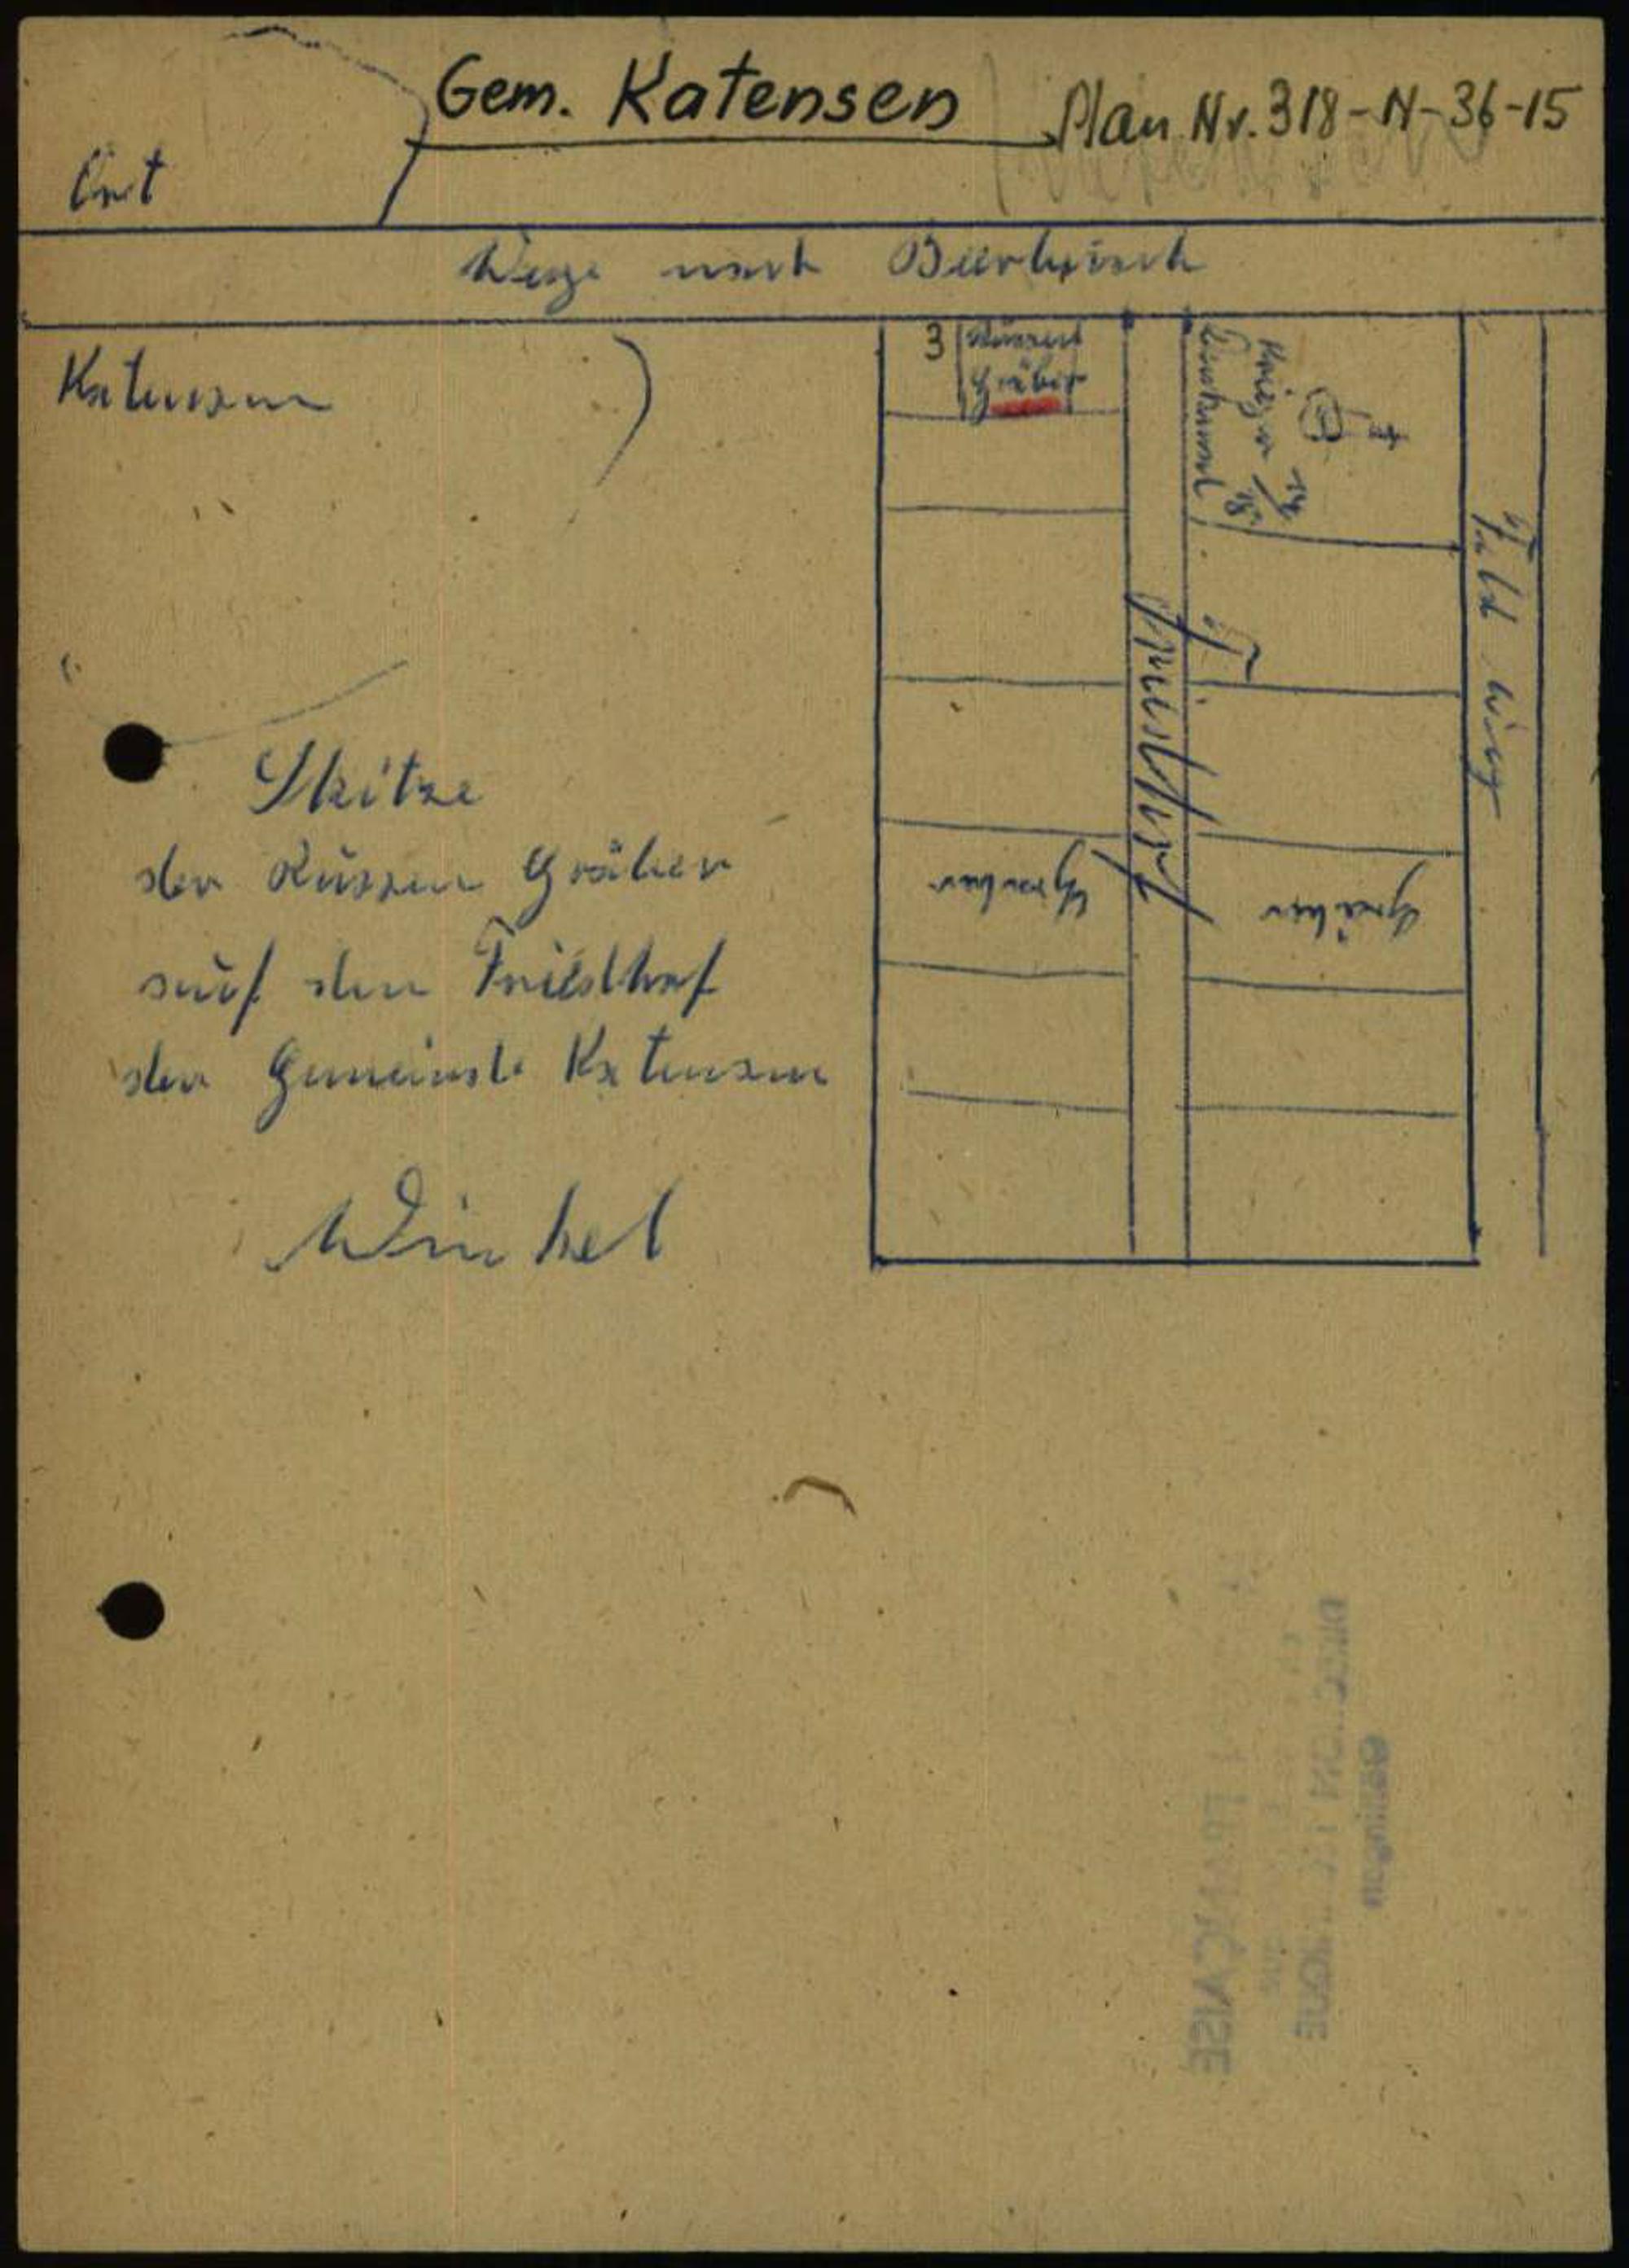 Gem. Katensen
Plan Nr. 318-N-36-15
Ort
Wege nach
Katensen
3 Russen
Gräber
Krieger
Denkmal
14/18
Feld weg
Friedhof
Gräber
Gräber
Skitze
der Russen Gräber
auf den Friedhof
der Gemeinde Katensen
Winkel
FRANÇAISE